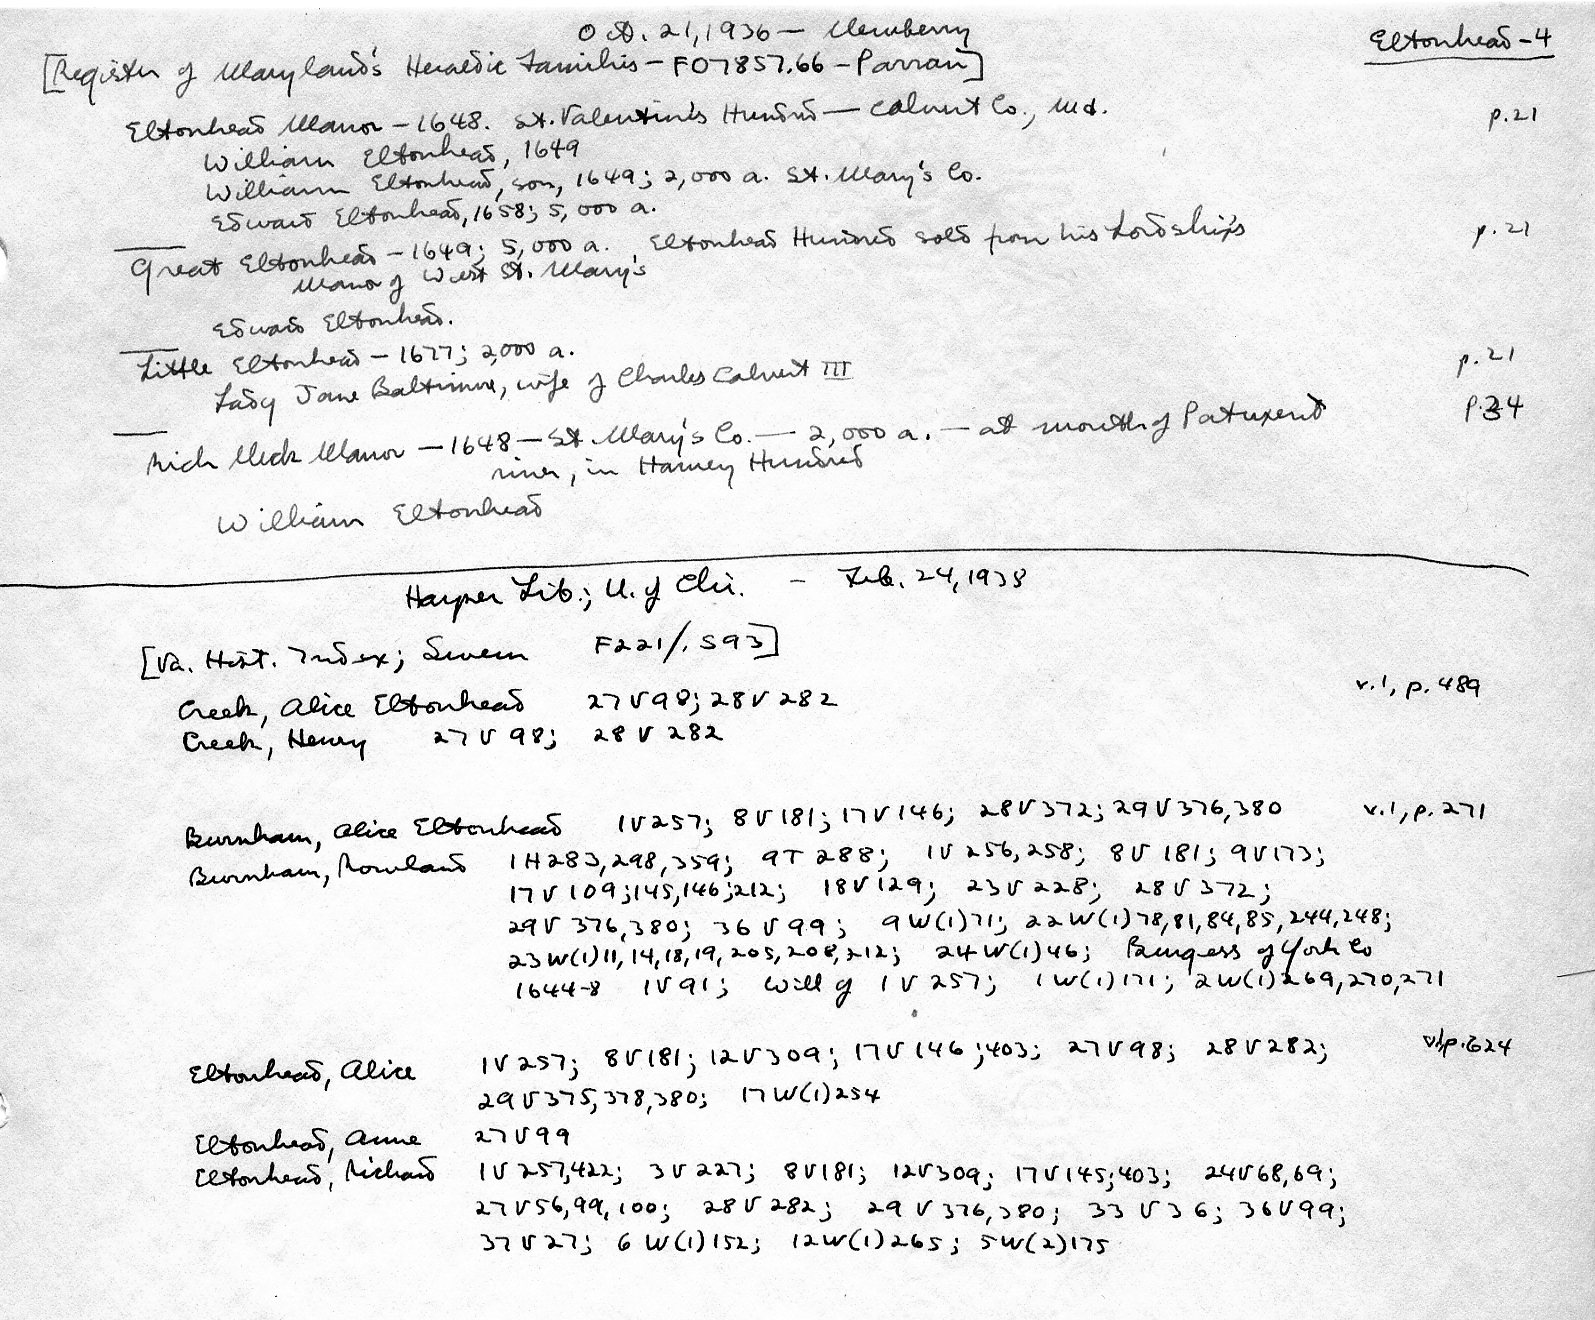 Oct. 21, 1936 — Newberry
Eltonhead-4
[Register of Maryland's Heraldic Families — F07857.66 — Parran]
Eltonhead Manor — 1648. St. Valentin's Hundred — Calvert Co., Md. p.21
William Eltonhead, 1649
William Eltonhead, son, 1649; 2,000 a. St. Mary's Co.
Edward Eltonhead, 1658; 5,000 a.
Great Eltonhead — 1649; 5,000 a. Eltonhead Hundred sold from his Lordship's p.21
Manor of West St. Mary's
Edward Eltonhead.
Little Eltonhead — 1677; 2,000 a. p.21
Lady Jane Baltimore, wife of Charles Calvert III
Rich Neck Manor — 1648 — St. Mary's Co. — 2,000 a. — at mouth of Patuxent p.34
river, in Harvey Hundred
William Eltonhead
Harper Lib.; U. of Chi. — Feb. 24, 1938
[Va. Hist. Index; Swem F221/.S93]
Creek, Alice Eltonhead 27V98; 28V282 v.1, p.489
Creek, Henry 27V98; 28V282
Burnham, Alice Eltonhead 1V257; 8V181; 17V146; 28V372; 29V376,380 v.1, p.271
Burnham, Rowland 1H283,298,359; 9T288; 1V256,258; 8V181; 9V173;
17V109;145,146;212; 18V129; 23V228; 28V372;
29V376,380; 36V99; 9W(1)71; 22W(1)78,81,84,85,244,248;
23W(1)11,14,18,19,205,208,212; 24W(1)46; Burgess of York Co
1644-8 1V91; Will of 1V257; 1W(1)171; 2W(1)269,270,271
Eltonhead, Alice 1V257; 8V181; 12V309; 17V146;403; 27V98; 28V282; v1p.624
29V375,378,380; 17W(1)254
Eltonhead, Anne 27V99
Eltonhead, Richard 1V257,422; 3V227; 8V181; 12V309; 17V145;403; 24V68,69;
27V56,99,100; 28V282; 29V376,380; 33V36; 36V99;
37V27; 6W(1)152; 12W(1)265; 5W(2)175